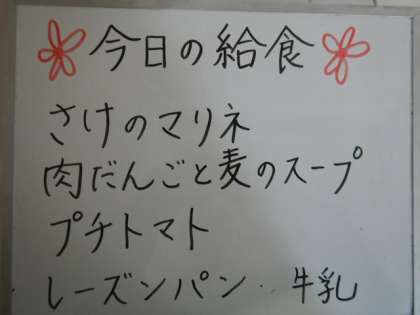 今日の給食
さけのマリネ
肉だんごと麦のスープ
プチトマト
レーズンパン‥牛乳